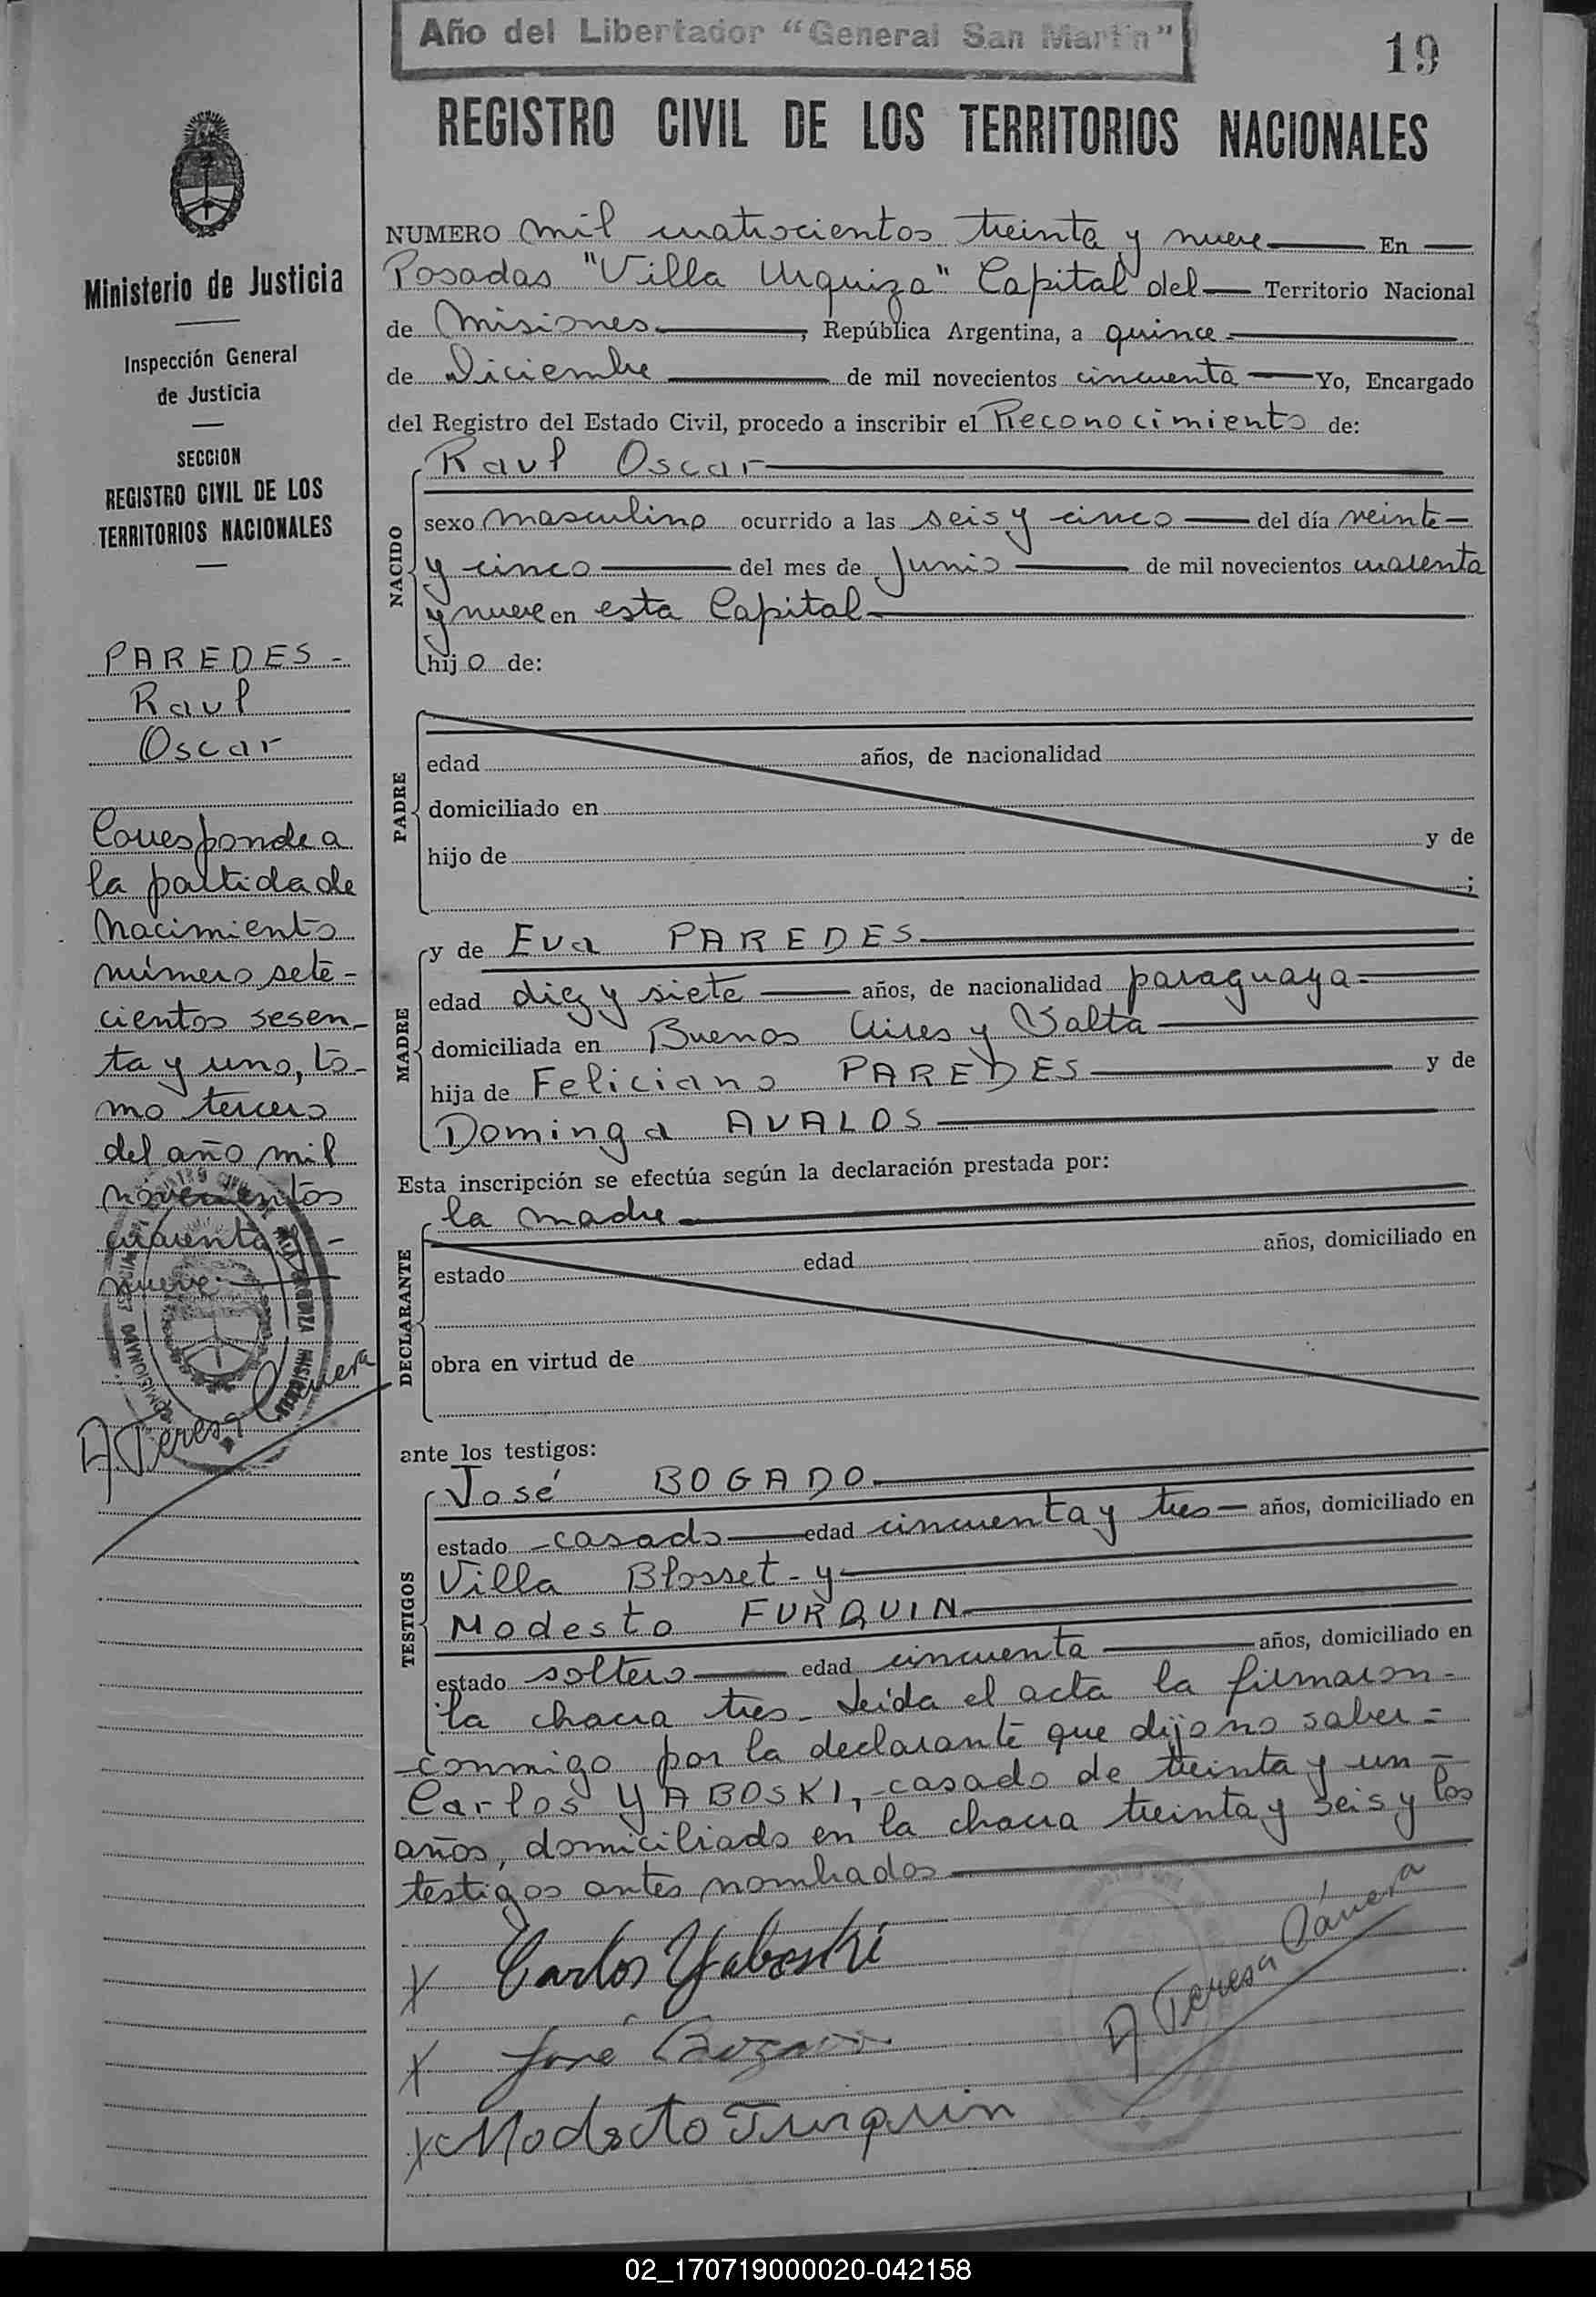 Año del Libertador "General San Martín"
19
REGISTRO CIVIL DE LOS TERRITORIOS NACIONALES
Ministerio de Justicia
Inspección General
de Justicia
SECCION
REGISTRO CIVIL DE LOS
TERRITORIOS NACIONALES
PAREDES -
Raul
Oscar
Corresponde a
la partida de
nacimiento
número sete-
cientos sesen-
ta y uno, to-
mo tercero
del año mil
novecientos
cuarenta y -
nueve
A Teresa Cánera
NUMERO mil cuatrocientos treinta y nueve En
Posadas "Villa Urquiza" Capital del Territorio Nacional
de Misiones, República Argentina, a quince
de Diciembre de mil novecientos cincuenta Yo, Encargado
del Registro del Estado Civil, procedo a inscribir el Reconocimiento de:
NACIDO
Raul Oscar
sexo masculino ocurrido a las seis y cinco del día veinte
y cinco del mes de Junio de mil novecientos cuarenta
y nueve en esta Capital
hijo de:
PADRE
edad años, de nacionalidad
domiciliado en
hijo de y de
;
MADRE
y de Eva PAREDES
edad diez y siete años, de nacionalidad paraguaya
domiciliada en Buenos Aires y Salta
hija de Feliciano PAREDES y de
Dominga AVALOS
Esta inscripción se efectúa según la declaración prestada por:
DECLARANTE
la madre
estado edad años, domiciliado en
obra en virtud de
ante los testigos:
TESTIGOS
José BOGADO
estado casado edad cincuenta y tres años, domiciliado en
Villa Blosset - y
Modesto FURQUIN
estado soltero edad cincuenta años, domiciliado en
la chacra tres. Leida el acta la firmaron
conmigo por la declarante que dijo no saber
Carlos YABOSKI, casado de treinta y un
años, domiciliado en la chacra treinta y seis y los
testigos antes nombrados
x Carlos Yaboski
x José Bogado
x Modesto Furquin
A Teresa Cánera
02_170719000020-042158